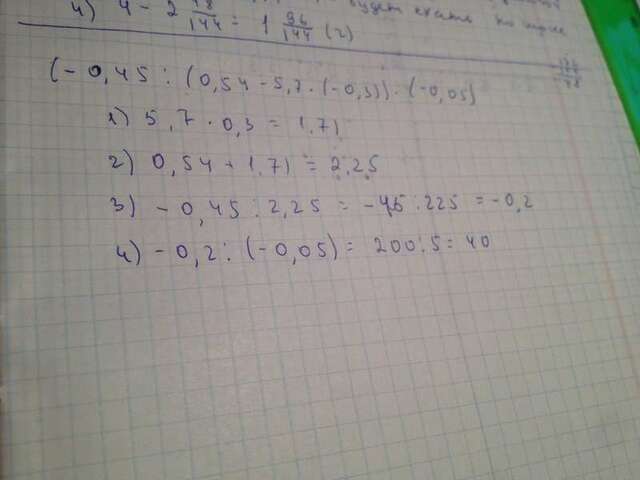 4) 4 - 2 18/144 = 1 86/144 (2)
(-0,45 : (0,54 - 5,7 · (-0,3)) : (-0,05)
1) 5,7 · 0,3 = 1,71
2) 0,54 + 1,71 = 2,25
3) - 0,45 : 2,25 = - 45 : 225 = - 0,2
4) - 0,2 : (-0,05) = 200 : 5 = 40